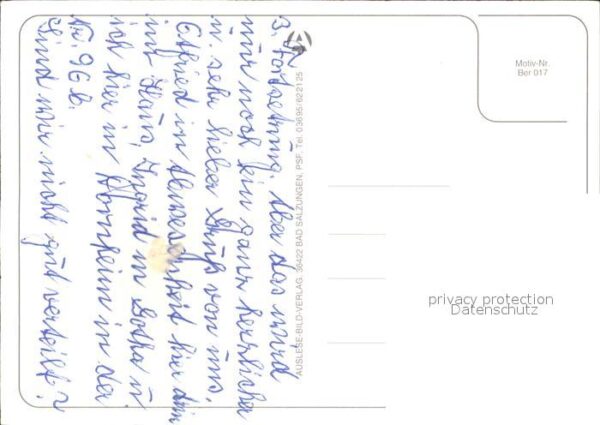 3. Fortsetzung. Aber das wird
nur noch ein ganz herzlicher
u. sehr lieber Gruß von uns.
Otfried in Anwesenheit hier drin
mit Hans, Ingrid in Gotha u
ich hier in Dornheim in der
Nr. 96 b.
Sind wir nicht gut verteilt?
AUSLESE-BILD-VERLAG. 36422 BAD SALZUNGEN, PSF, Tel. 03695/622125
Motiv-Nr.
Ber 017
privacy protection
Datenschutz